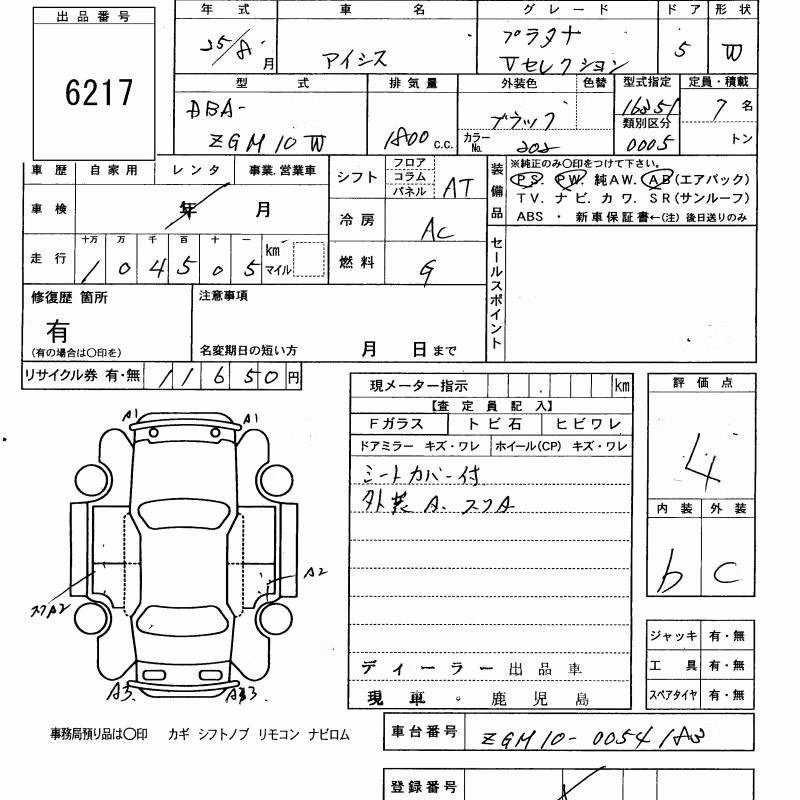 出品番号
6217
年式 車名 グレード ドア 形状
25/8月 アイシス プラタナ Vセレクション 5 W
型式 排気量 外装色 色替 型式指定 定員・積載
DBA-
ZGM10W
1800 c.c.
ブラック
カラーNo. 202
16351
類別区分
0005
7名
トン
車歴 自家用 レンタ 事業.営業車
車検 年 月
走行 十万 万 千 百 十 一
104505 km マイル
シフト フロア コラム パネル AT
冷房 AC
燃料 G
装備品
※純正のみ〇印をつけて下さい。
PS. PW. 純AW. AB(エアバック)
TV. ナビ. カワ. SR(サンルーフ)
ABS ・ 新車保証書←(注) 後日送りのみ
セールスポイント
修復歴 箇所
有
(有の場合は〇印を)
注意事項
名変期日の短い方 月 日まで
リサイクル券 有・無 11650円
現メーター指示 km
【査定員記入】
Fガラス トビ石 ヒビワレ
ドアミラー キズ・ワレ ホイール(CP) キズ・ワレ
シートカバー付
外装 A. スリA
ディーラー出品車
現車・鹿児島
評価点
4
内装 外装
b C
ジャッキ 有・無
工具 有・無
スペアタイヤ 有・無
A1 A1
A2
スリA2
A3. A3
事務局預り品は〇印 カギ シフトノブ リモコン ナビロム
車台番号 ZGM10-0054183
登録番号